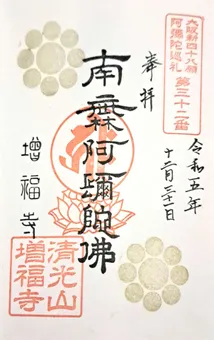 大阪新四十八願
阿彌陀巡礼
第三十二番
奉拝
令和五年
十二月二十一日
南無阿彌陀佛
増福寺
清光山
増福寺